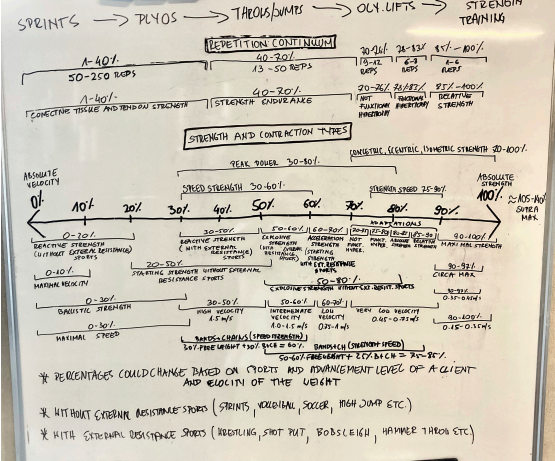 SPRINTS → PLYOS → THROWS/JUMPS → OLY. LIFTS → STRENGTH TRAINING
REPETITION CONTINUUM
1-40% 40-70% 70-76% 78-83% 85%-100%
50-250 REPS 13-50 REPS 9-12 REPS 6-8 REPS 1-6 REPS
1-40% 40-70% 70-76% 78/83% 85%-100%
CONECTIVE TISSUE AND TENDON STRENGTH STRENGTH ENDURANCE NOT FUNCTIONAL HYPERTROPHY FUNCTIONAL HYPERTROPHY RELATIVE STRENGTH
STRENGTH AND CONTRACTION TYPES
CONCETRIC, ECENTRIC, ISOMETRIC STRENGTH 70-100%
PEAK POWER 30-80%
ABSOLUTE VELOCITY SPEED STRENGTH 30-60% STRENGTH SPEED 75-90% ABSOLUTE STRENGTH
0% 10% 20% 30% 40% 50% 60% 70% 80% 90% 100% SUPRA MAX
ADAPTATIONS
0-20% 30-50% 50-60% 60-70% 90-100%
REACTIVE STRENGTH (WITHOUT EXTERNAL RESISTANCE) SPORTS
REACTIVE STRENGTH (WITH EXTERNAL RESISTANCE) SPORTS
EXPLOSIVE STRENGTH
STRENGTH (STARTING STRENGTH)
NOT FUNCT. HYPER.
FUNCT. HYPER.
RELATIVE STRENGTH
MAXIMAL STRENGTH
0-10% 20-50% 90-97%
MAXIMAL VELOCITY STARTING STRENGTH WITHOUT EXTERNAL RESISTANCE SPORTS CIRCA MAX
50-80%
EXPLOSIVE STRENGTH WITHOUT EXT. RESIST. SPORTS
0-30% 30-50% 50-60% 60-70%
BALISTIC STRENGTH HIGH VELOCITY INTERMEDIATE VELOCITY LOW VELOCITY VERY LOW VELOCITY
1.5 m/s 1.0-1.5 m/s 0.75-1 m/s 0.45-0.75m/s
0-30% 90-100%
MAXIMAL SPEED 0.15-0.35m/s
BANDS+CHAINS (SPEED STRENGTH) BANDS+CH (STRENGTH SPEED)
30% FREE WEIGHT +30% B&CH = 60%
50-60% FREE WEIGHT + 25% B+CH = 75-85%
* PERCENTAGES COULD CHANGE BASED ON SPORTS AND ADVANCEMENT LEVEL OF A CLIENT
AND VELOCITY OF THE WEIGHT
* WITHOUT EXTERNAL RESISTANCE SPORTS (SPRINTS, VOLLEYBALL, SOCCER, HIGH JUMP ETC.)
* WITH EXTERNAL RESISTANCE SPORTS (WRESTLING, SHOT PUT, BOBSLEIGH, HAMMER THROW ETC)